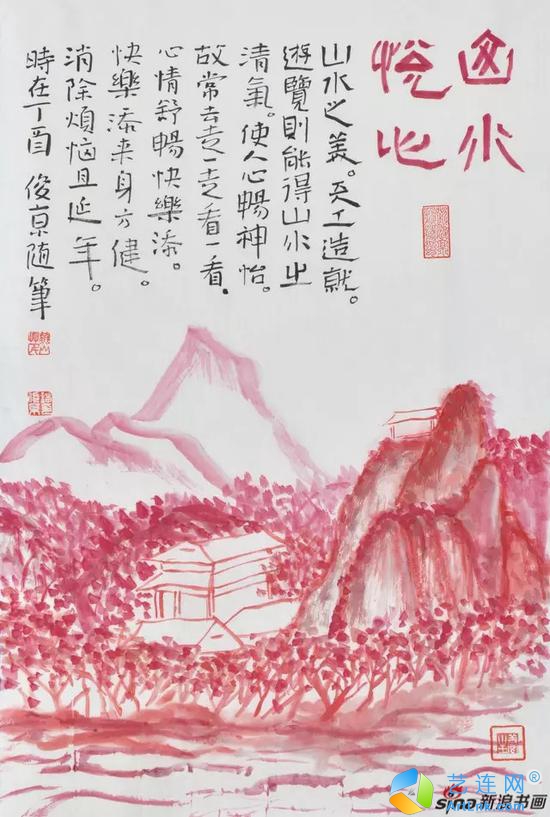 山水
悦心
山水之美。天工造就。
遊覽則能得山水之
清氣。使人心暢神怡。
故常去走一走看一看.
心情舒暢快樂添。
快樂添來身方健。
消除煩惱且延年。
時在丁酉 俊京随筆
艺连网®
sina新浪书画